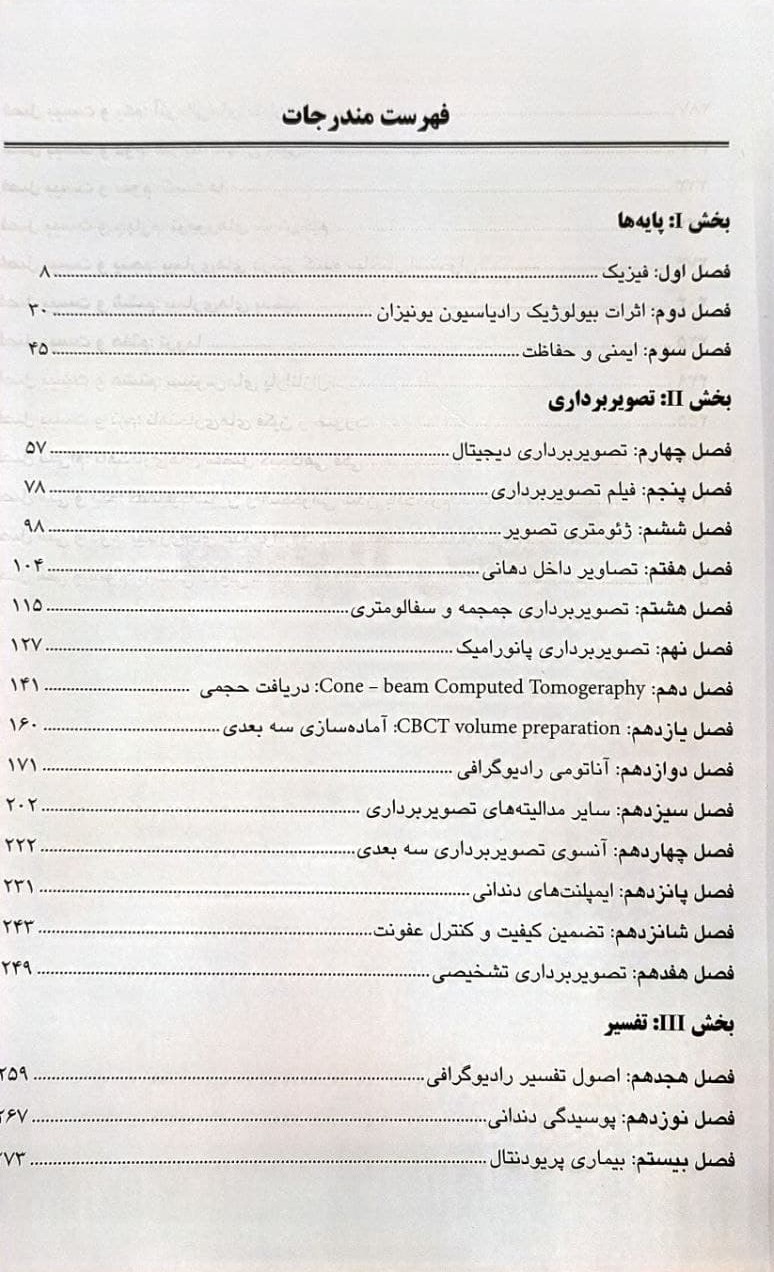 فهرست مندرجات
بخش I: پایه‌ها
فصل اول: فیزیک ........ ۸
فصل دوم: اثرات بیولوژیک رادیاسیون یونیزان ........ ۳۰
فصل سوم: ایمنی و حفاظت ........ ۴۵
بخش II: تصویربرداری
فصل چهارم: تصویربرداری دیجیتال ........ ۵۷
فصل پنجم: فیلم تصویربرداری ........ ۷۸
فصل ششم: ژئومتری تصویر ........ ۹۸
فصل هفتم: تصاویر داخل دهانی ........ ۱۰۴
فصل هشتم: تصویربرداری جمجمه و سفالومتری ........ ۱۱۵
فصل نهم: تصویربرداری پانورامیک ........ ۱۲۷
فصل دهم: Cone – beam Computed Tomogeraphy: دریافت حجمی ........ ۱۴۱
فصل یازدهم: CBCT volume preparation: آماده‌سازی سه بعدی ........ ۱۶۰
فصل دوازدهم: آناتومی رادیوگرافی ........ ۱۷۱
فصل سیزدهم: سایر مدالیته‌های تصویربرداری ........ ۲۰۲
فصل چهاردهم: آنسوی تصویربرداری سه بعدی ........ ۲۲۲
فصل پانزدهم: ایمپلنت‌های دندانی ........ ۲۳۱
فصل شانزدهم: تضمین کیفیت و کنترل عفونت ........ ۲۴۳
فصل هفدهم: تصویربرداری تشخیصی ........ ۲۴۹
بخش III: تفسیر
فصل هجدهم: اصول تفسیر رادیوگرافی ........ ۲۵۹
فصل نوزدهم: پوسیدگی دندانی ........ ۲۶۷
فصل بیستم: بیماری پریودنتال ........ ۲۷۳